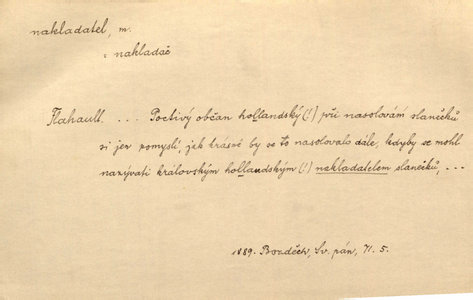 nakladatel, m.
= nakladač
Flahault. ... Poctivý občan hollandský (!) při nasolování slanečků
si jen pomyslí, jak krásně by se to nasolovalo dále, kdyby se mohl
nazývati královským hollandským (!) nakladatelem slanečků, ...
1889. Bozděch, Sv. pán, 71. 5.